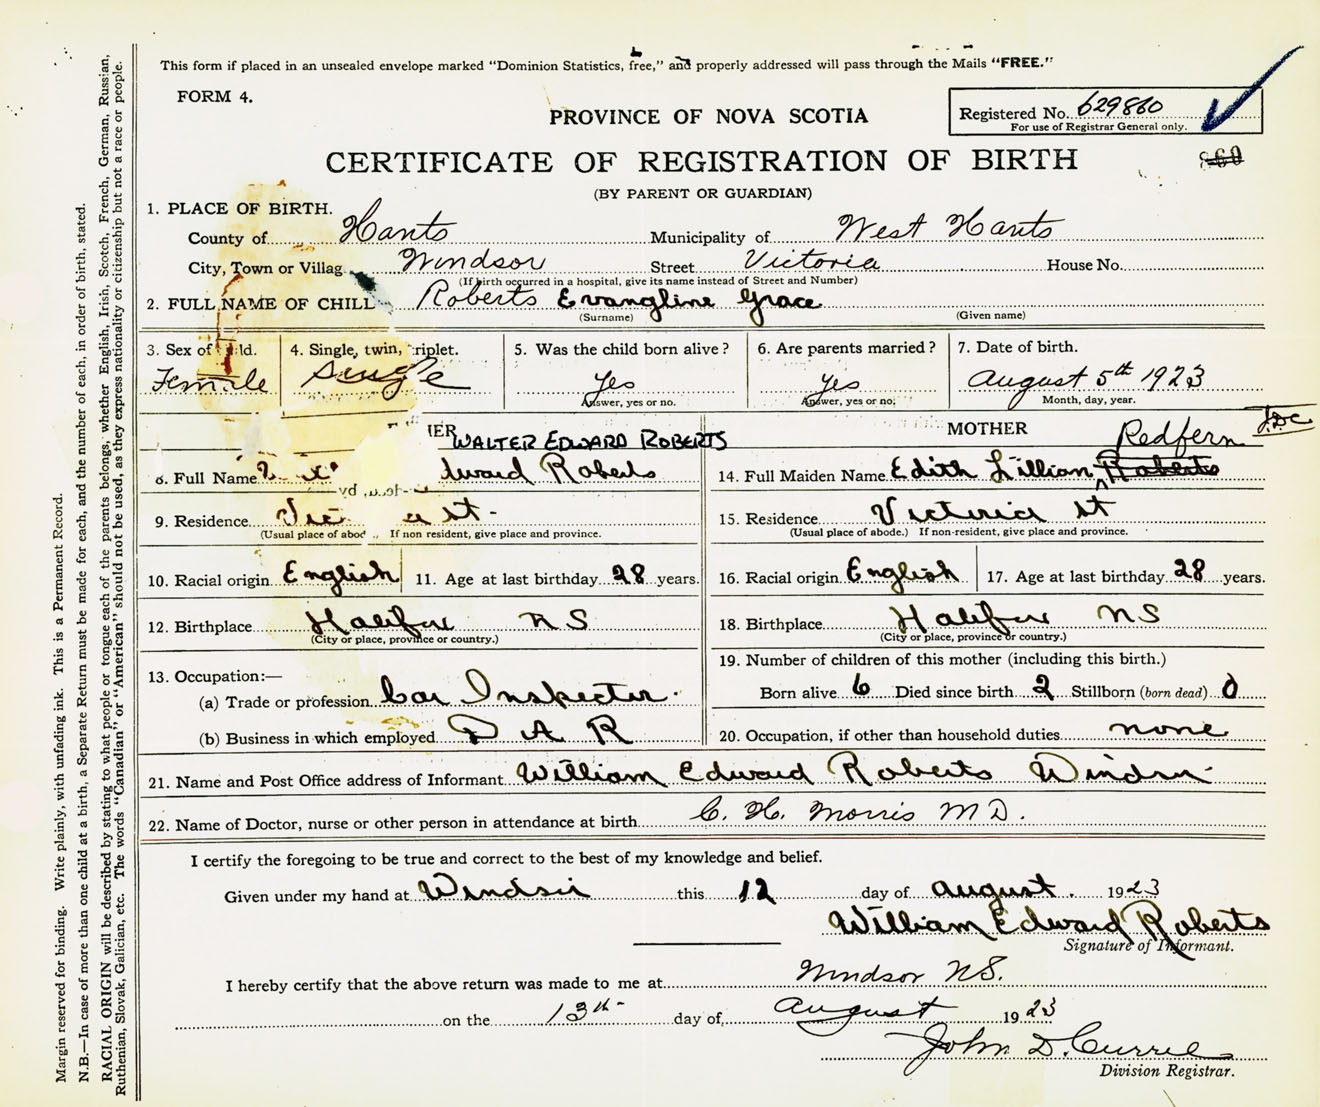 This form if placed in an unsealed envelope marked "Dominion Statistics, free," and properly addressed will pass through the Mails "FREE."
FORM 4.
PROVINCE OF NOVA SCOTIA
Registered No. 629860
For use of Registrar General only.
CERTIFICATE OF REGISTRATION OF BIRTH
860
(BY PARENT OR GUARDIAN)
1. PLACE OF BIRTH.
County of Hants Municipality of West Hants
City, Town or Villag Windsor Street Victoria House No.
(If birth occurred in a hospital, give its name instead of Street and Number)
2. FULL NAME OF CHILL Roberts Evangline Grace
(Surname) (Given name)
3. Sex of ld. 4. Single, twin, triplet. 5. Was the child born alive? 6. Are parents married? 7. Date of birth.
Female Single Yes Yes August 5th 1923
Answer, yes or no. Answer, yes or no. Month, day, year.
HER WALTER EDWARD ROBERTS MOTHER Redfern J.D.C
8. Full Name dward Roberts 14. Full Maiden Name Edith Lillian Roberts
9. Residence Vic a st- 15. Residence Victoria St
(Usual place of abod If non resident, give place and province. (Usual place of abode.) If non-resident, give place and province.
10. Racial origin English 11. Age at last birthday 28 years. 16. Racial origin English 17. Age at last birthday 28 years.
12. Birthplace Halifax N S 18. Birthplace Halifax N S
(City or place, province or country.) (City or place, province or country.)
19. Number of children of this mother (including this birth.)
13. Occupation:—
(a) Trade or profession Car Inspecter. Born alive 6 Died since birth 2 Stillborn (born dead) 0
(b) Business in which employed D A R 20. Occupation, if other than household duties none
21. Name and Post Office address of Informant William Edward Roberts Windsor
22. Name of Doctor, nurse or other person in attendance at birth C. H. Morris M D.
I certify the foregoing to be true and correct to the best of my knowledge and belief.
Given under my hand at Windsor this 12 day of august. 1923
William Edward Roberts
Signature of Informant.
I hereby certify that the above return was made to me at Windsor N.S.
on the 13th day of August 1923
John D. Currie
Division Registrar.
Margin reserved for binding. Write plainly, with unfading ink. This is a Permanent Record.
N.B.—In case of more than one child at a birth, a Separate Return must be made for each, and the number of each, in order of birth, stated.
RACIAL ORIGIN will be described by stating to what people or tongue each of the parents belongs, whether English, Irish, Scotch, French, German, Russian,
Ruthenian, Slovak, Galician, etc. The words "Canadian" or "American" should not be used, as they express nationality or citizenship but not a race or people.